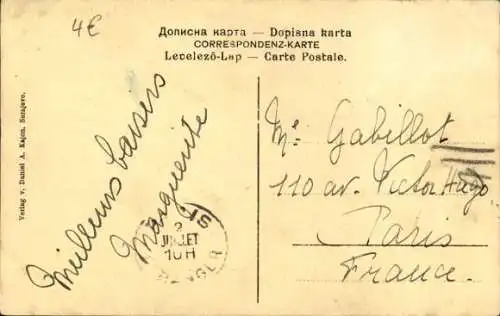 4€
Дописна карта — Dopisna karta
CORRESPONDENZ-KARTE
Levelező-Lap — Carte Postale.
Verlag v. Daniel A. Kajon, Sarajevo.
Meilleurs baisers
Marguerite
2
JUILLET
10H
Me Gabillot
110 av. Victor Hugo
Paris
France.